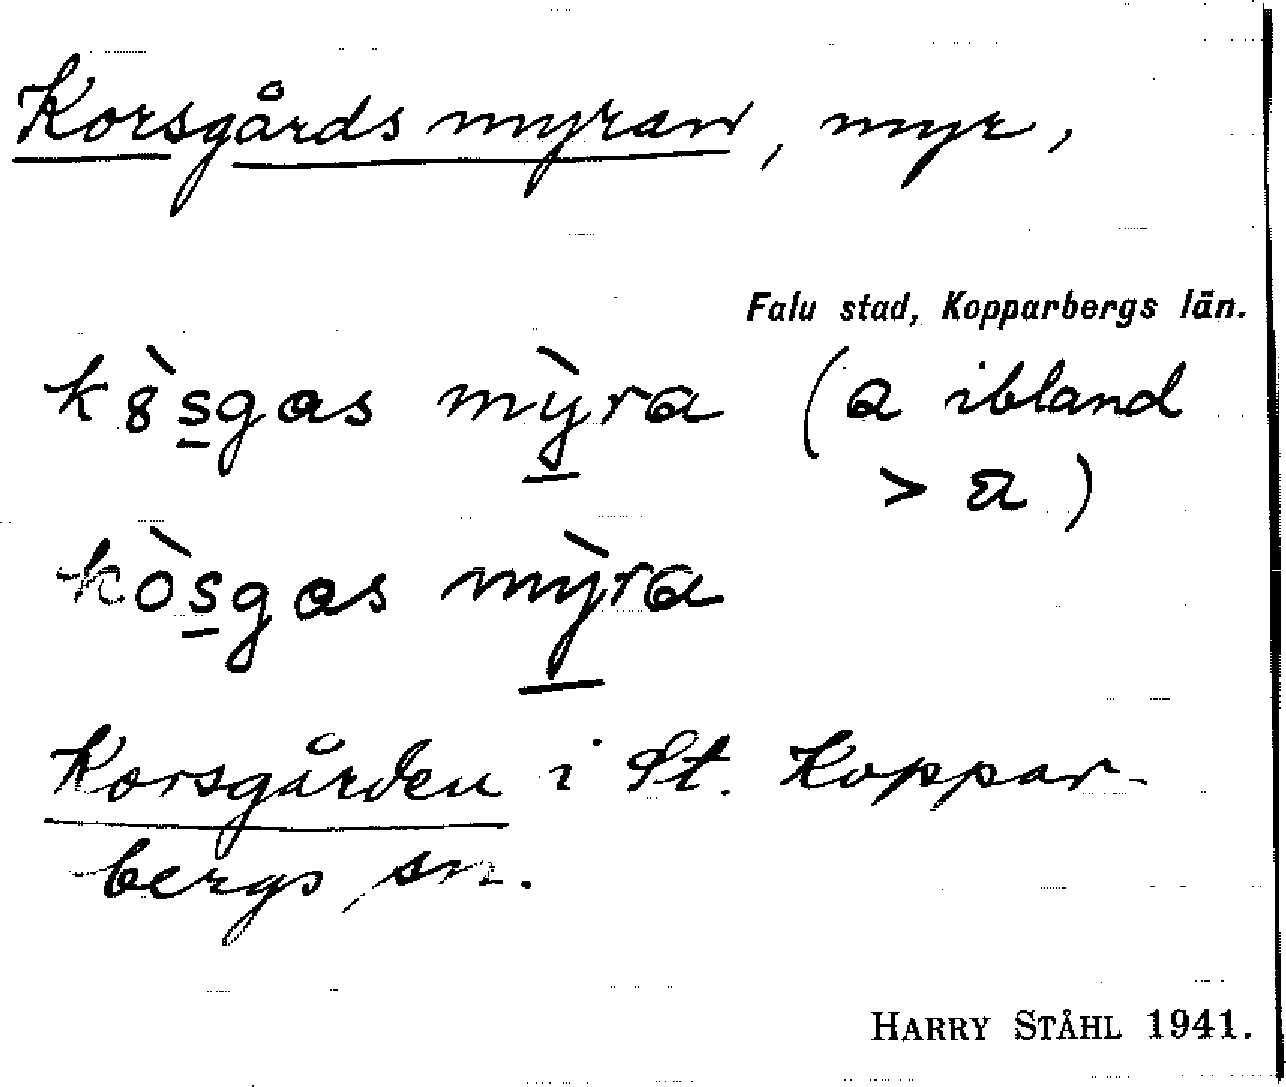 Korsgårdsmyran, myr,
Falu stad, Kopparbergs län.
kòsgas mỳra (a ibland
> a)
kòsgas mỳra
Korsgården i St. Koppar-
bergs sn.
HARRY STÅHL 1941.